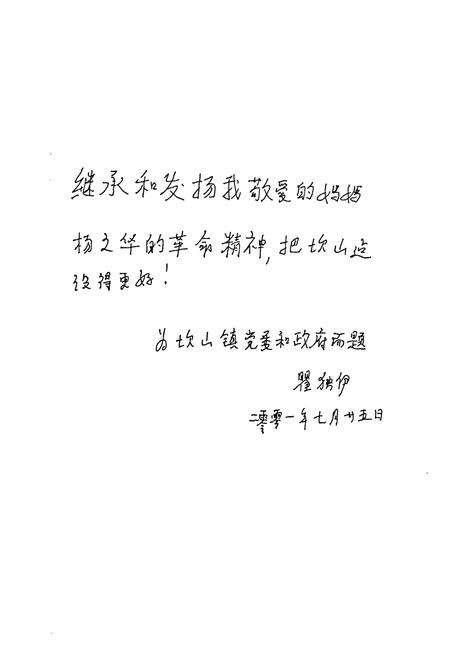 继承和发扬我敬爱的妈妈
杨之华的革命精神，把坎山建
设得更好！
为坎山镇党委和政府而题
瞿独伊
二零零一年七月廿五日